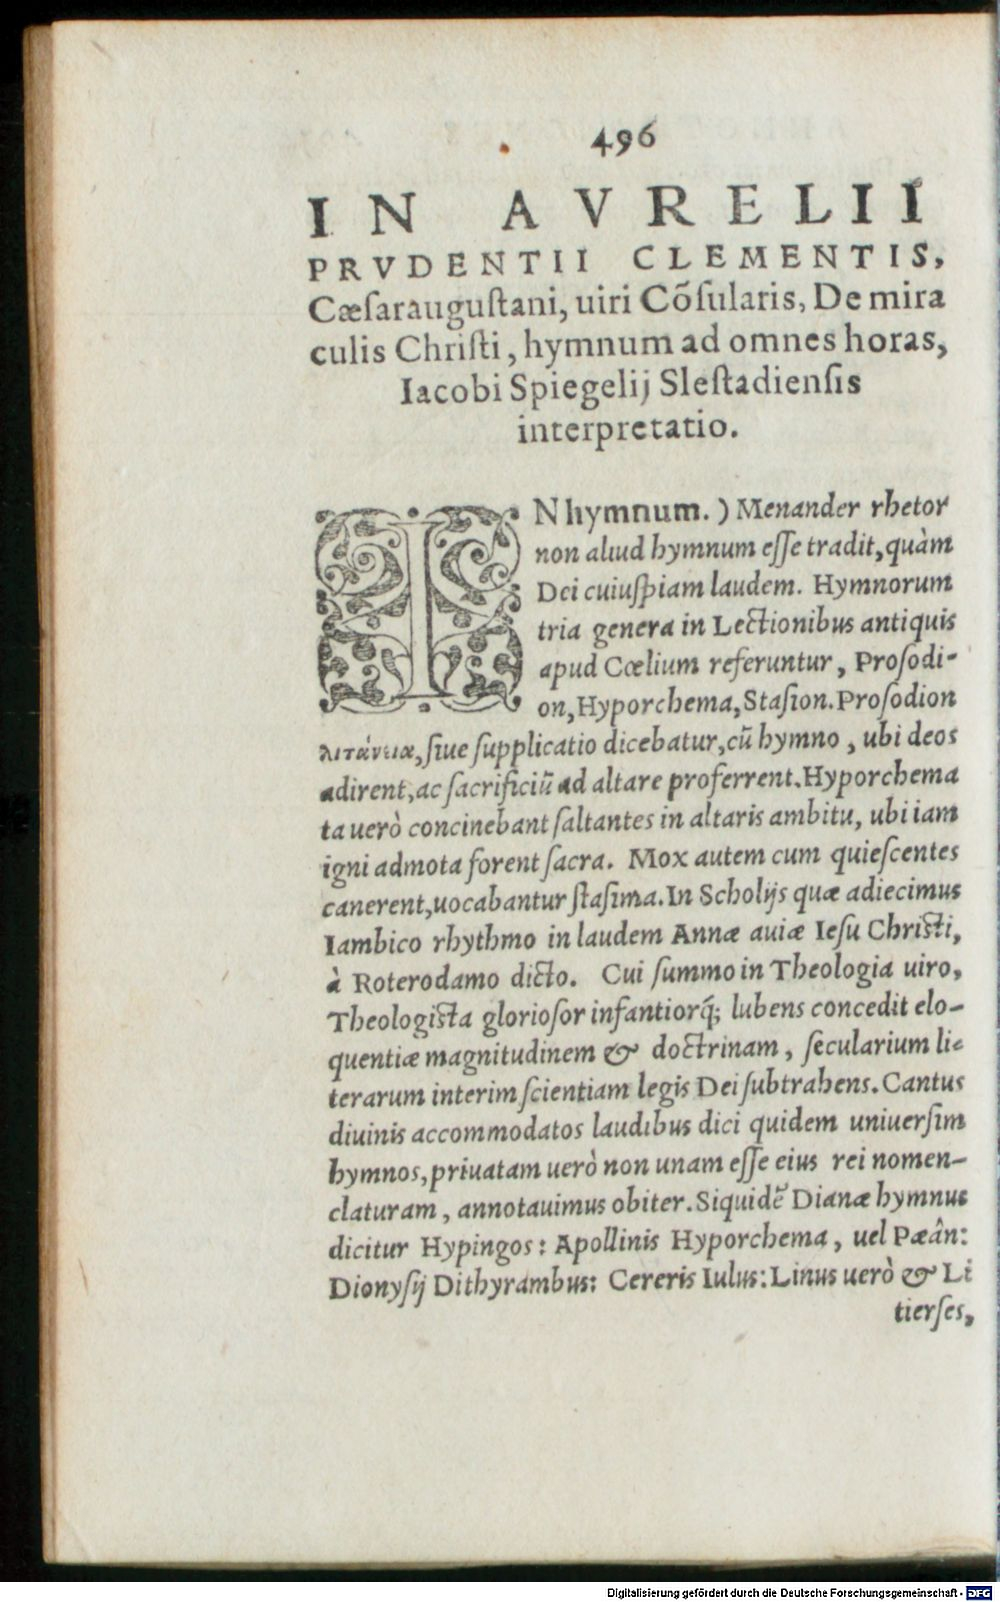 496
IN AVRELII
PRVDENTII CLEMENTIS,
Cæſarauguſtani, uiri Cõſularis, De mira
culis Chriſti, hymnum ad omnes horas,
Iacobi Spiegelij Sleſtadienſis
interpretatio.
IN hymnum.) Menander rhetor
non aliud hymnum eſſe tradit, quàm
Dei cuiuſpiam laudem. Hymnorum
tria genera in Lectionibus antiquis
apud Cœlium referuntur, Proſodi-
on, Hyporchema, Staſion. Proſodion
λιτάνεια, ſiue ſupplicatio dicebatur, cũ hymno, ubi deos
adirent, ac ſacrificiũ ad altare proferrent. Hyporchema
ta uerò concinebant ſaltantes in altaris ambitu, ubi iam
igni admota forent ſacra. Mox autem cum quieſcentes
canerent, uocabantur ſtaſima. In Scholijs quæ adiecimus
Iambico rhythmo in laudem Annæ auiæ Ieſu Chriſti,
à Roterodamo dicto. Cui ſummo in Theologia uiro,
Theologiſta glorioſor infantiorq́; lubens concedit elo-
quentiæ magnitudinem & doctrinam, ſecularium li-
terarum interim ſcientiam legis Dei ſubtrahens. Cantus
diuinis accommodatos laudibus dici quidem uniuerſim
hymnos, priuatam uerò non unam eſſe eius rei nomen-
claturam, annotauimus obiter. Siquidẽ Dianæ hymnus
dicitur Hypingos: Apollinis Hyporchema, uel Pæân:
Dionyſij Dithyrambus: Cereris Iulus: Linus uerò & Li
tierſes,
Digitalisierung gefördert durch die Deutsche Forschungsgemeinschaft - DFG